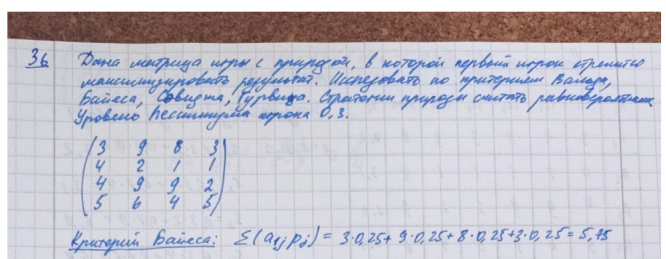 36 Дана матрица игры с природой, в которой первый игрок стремится
максимизировать результат. Исследовать по критериям Вальда,
Байеса, Сэвиджа, Гурвица. Стратегии природы считать равновероятными.
Уровень пессимизма игрока 0,3.
3 9 8 3
4 2 1 1
4 9 9 2
5 6 4 5
Критерий Байеса: Σ(a₁ⱼ pⱼ) = 3·0,25+ 9·0,25+ 8·0,25+3·0,25= 5,75